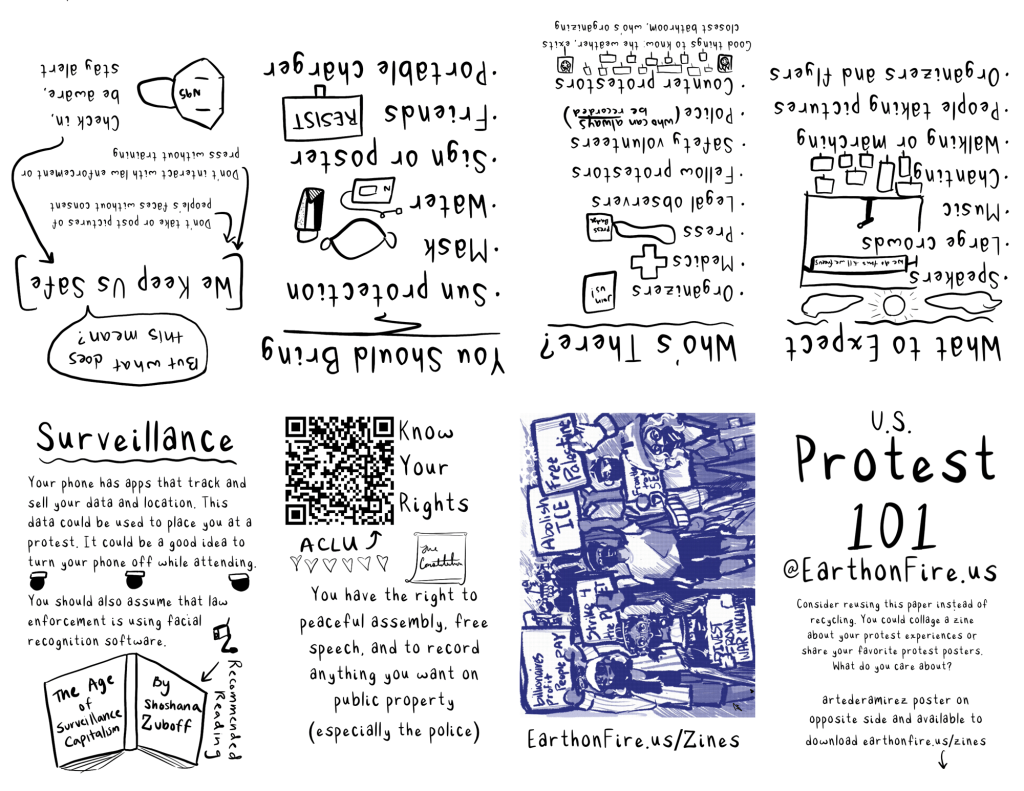 U.S.
Protest
101
@EarthonFire.us
Consider reusing this paper instead of
recycling. You could collage a zine
about your protest experiences or
share your favorite protest posters.
What do you care about?
artederamirez poster on
opposite side and available to
download earthonfire.us/zines
What to Expect
· Speakers
· Large crowds
· Music
· Chanting
· Walking or marching
· People taking pictures
· Organizers and flyers
Who's There?
· Organizers
· Medics
· Press
Press
Badge
· Legal observers
· Fellow protestors
· Safety volunteers
· Police (who can always
be recorded)
· Counter protestors
Good things to know: the weather, exits
closest bathroom, who's organizing
You Should Bring
· Sun protection
· Mask
· Water
· Sign or poster
· Friends
RESIST
· Portable charger
But what does
this mean?
[We Keep Us Safe]
Don't take or post pictures of
people's faces without consent
Don't interact with law enforcement or
press without training
Check in,
be aware,
stay alert
N95
Surveillance
Your phone has apps that track and
sell your data and location. This
data could be used to place you at a
protest. It could be a good idea to
turn your phone off while attending.
You should also assume that law
enforcement is using facial
recognition software.
Recommended
Reading
The Age
of
Surveillance
Capitalism
By
Shoshana
Zuboff
Know
Your
Rights
ACLU
the
Constitution
You have the right to
peaceful assembly, free
speech, and to record
anything you want on
public property
(especially the police)
Free
Palestine
Abolish
ICE
Strike 4
billionaires
profit
People PAY
DIVEST
FROM
WAR MACHINE
EarthonFire.us/Zines